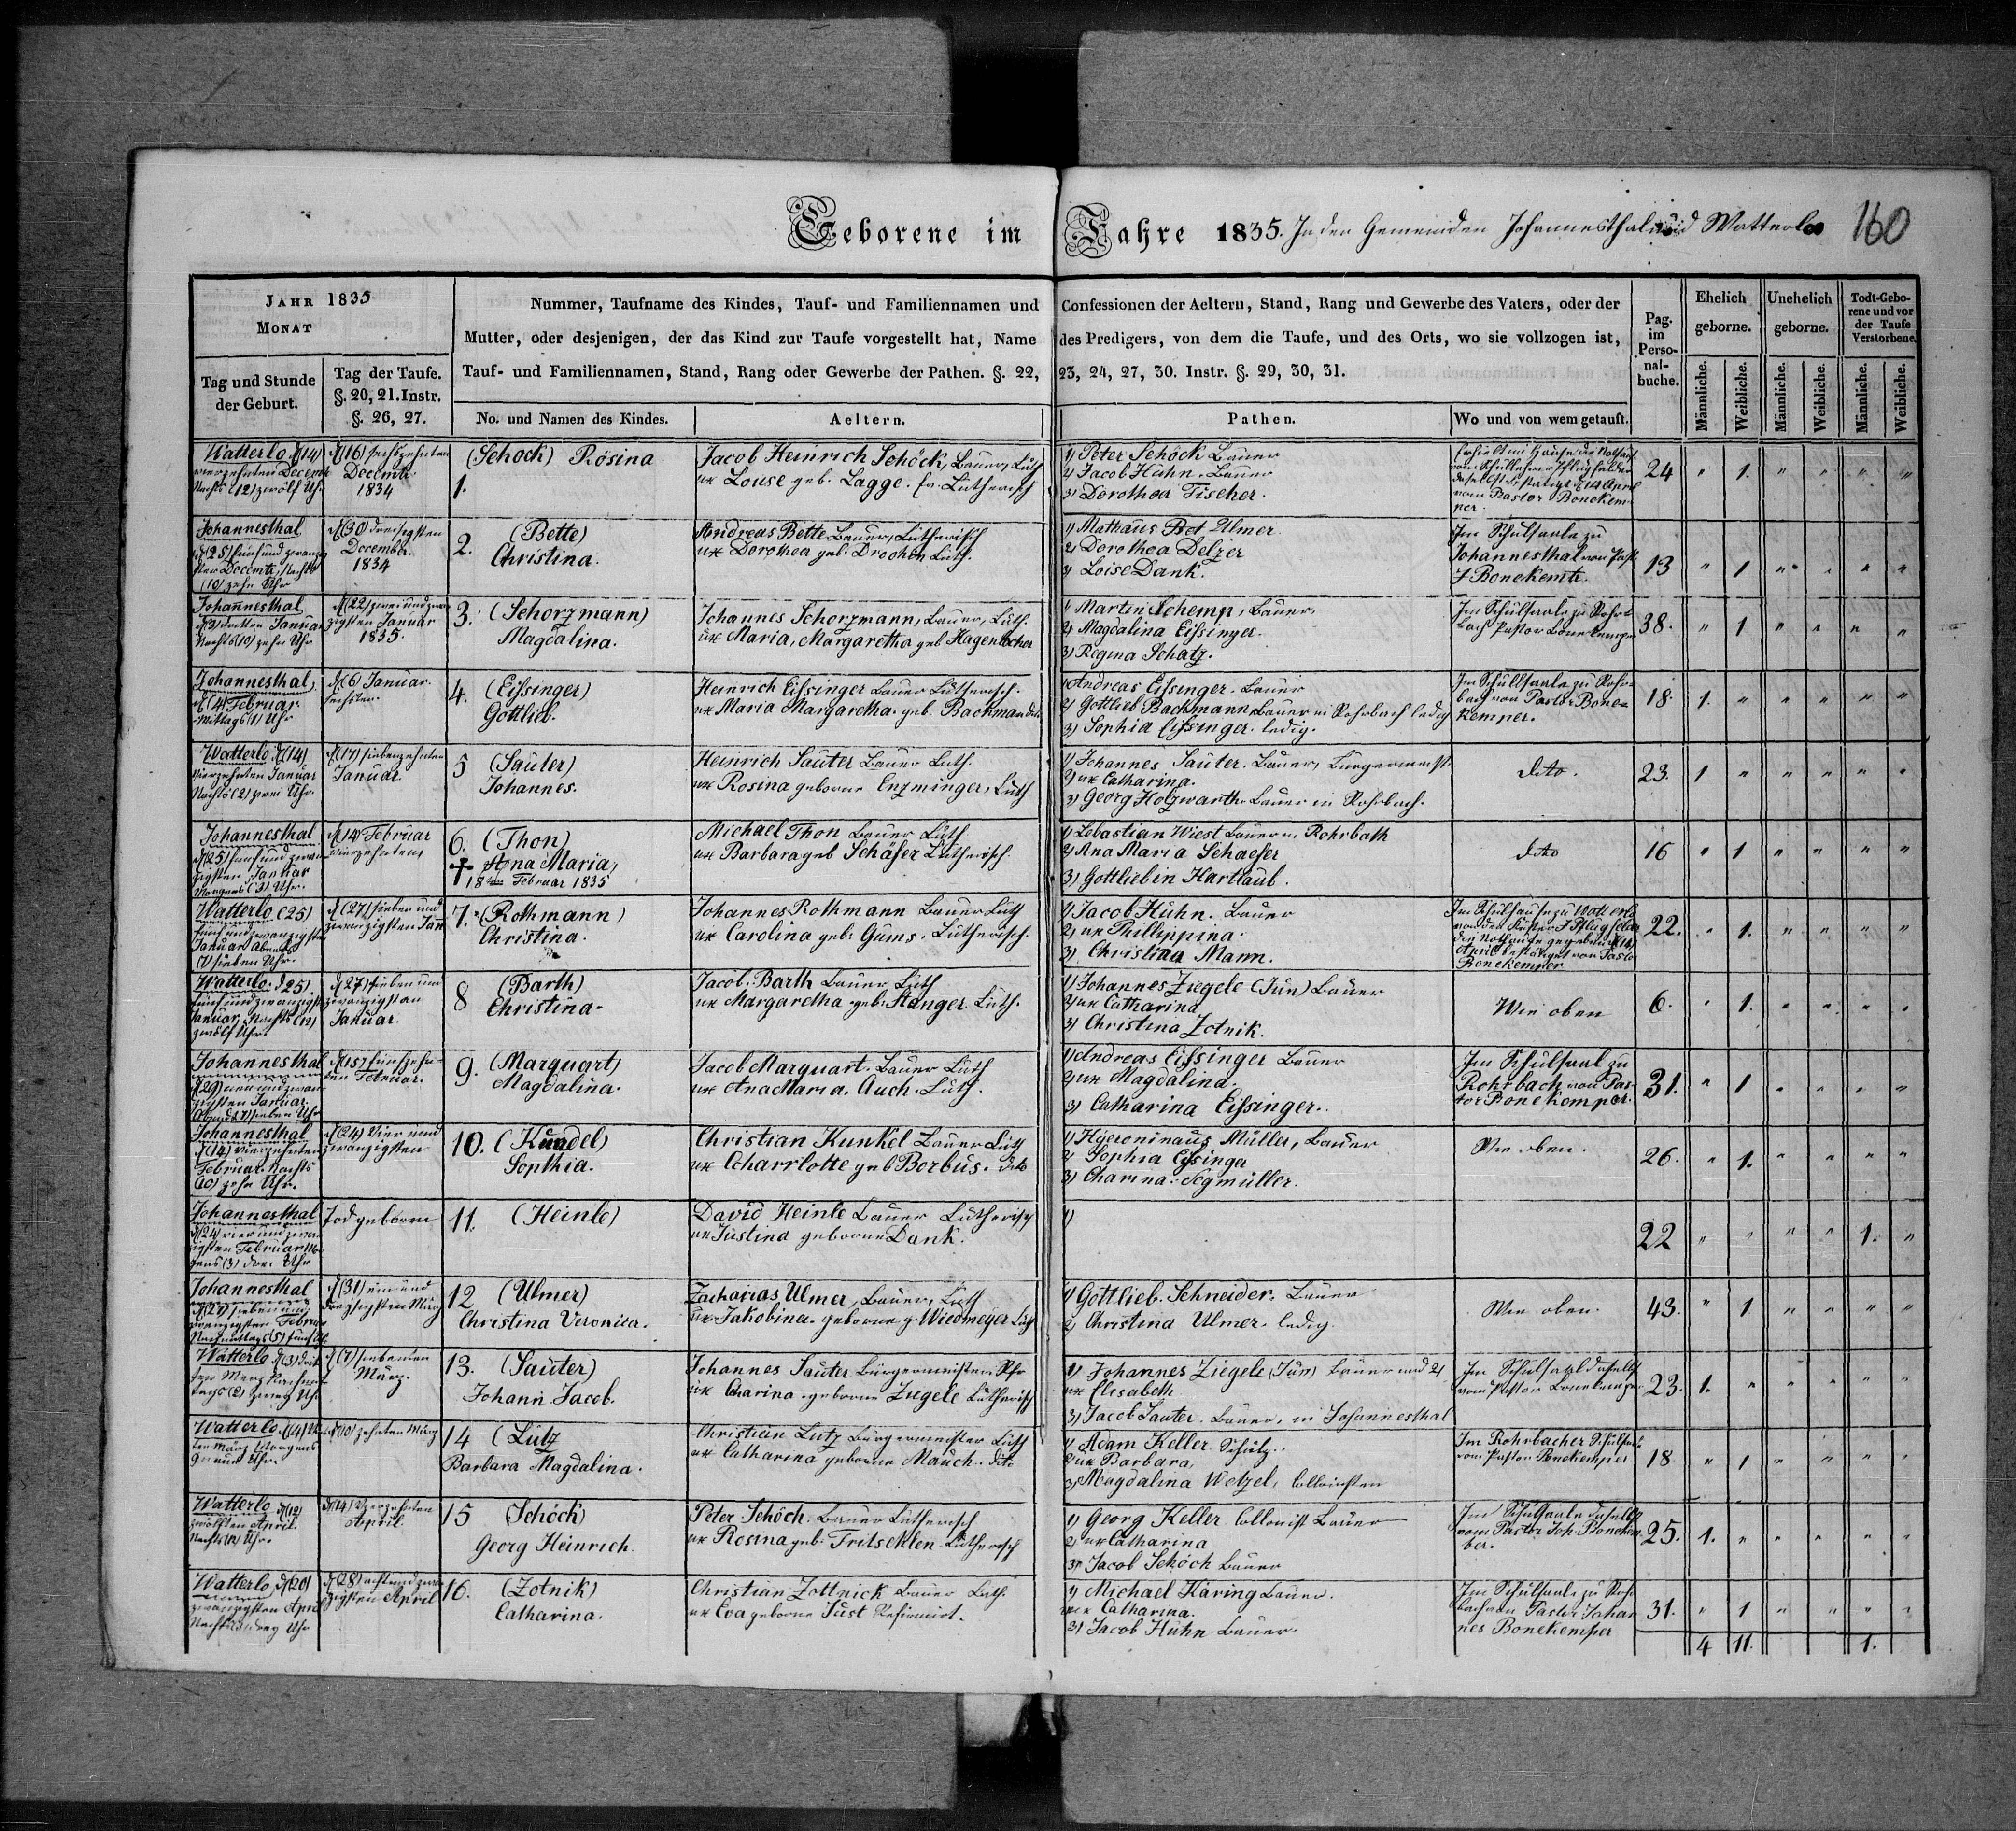 Geborene im Jahre 1835. In den Gemeinden Johannesthal und Watterloo 160
JAHR 1835
MONAT
Tag und Stunde der Geburt.
Tag der Taufe. §. 20, 21. Instr. §. 26, 27.
Nummer, Taufname des Kindes, Tauf- und Familiennamen und Confessionen der Aeltern, Stand, Rang und Gewerbe des Vaters, oder der
Mutter, oder desjenigen, der das Kind zur Taufe vorgestellt hat, Name des Predigers, von dem die Taufe, und des Orts, wo sie vollzogen ist,
Tauf- und Familiennamen, Stand, Rang oder Gewerbe der Pathen. §. 22, 23, 24, 27, 30. Instr. §. 29, 30, 31.
No. und Namen des Kindes.
Aeltern.
Pathen.
Wo und von wem getauft.
Pag. im Perso-nal-buche.
Ehelich geborne.
Unehelich geborne.
Todt-Gebo-rene und vor der Taufe Verstorbene.
Männliche. Weibliche. Männliche. Weibliche. Männliche. Weibliche.
Watterlo d (14)
vierzehnten Decemb
Nachts (12) zwölf Uhr
d (16) sechszehnten
Decembr
1834
1.
(Schock) Rosina
Jacob Heinrich Schöck, Bauer, Luth
ux Louse geb. Lagge. Lutherisch
1) Peter Schöck Bauer
2) Jacob Huhn. Bauer
3) Dorothea Fischer.
24 " 1. " " " "
Johannesthal
d (25) fünf und zwanzig
sten Decembr, Nachts
(10) zehn Uhr
d (30) dreisigsten
December.
1834
2.
(Bette)
Christina.
Andreas Bette Bauer, Lutherisch
ux Dorothea geb. Luth.
1) Mathäus Bet Ulmer
2) Dorothea Delzer
3) Loise Dank.
Im Schulsaale zu
Johannesthal von Past
J Bonekemb.
13 " 1 " " " "
Johannesthal
d (3) dritten Januar
Nachts (10) zehn Uhr
d (22) zwei und zwan
zigsten Januar
1835.
3. (Schorzmann)
Magdalina.
Johannes Schorzmann, Bauer, Luth.
ux Maria, Margaretha geb Hagenlocher
1) Martin Schemp, Bauer,
2) Magdalina Eissinger.
3) Regina Schatz.
Im Schulsaale zu Rohr
bach Pastor Bonekemper
38. " 1 " " " "
Johannesthal,
d (4) Februar.
Mittags (1) Uhr
d (6) Januar.
sechsten.
4. (Eissinger)
Gottlieb.
Heinrich Eissinger Bauer Lutherisch.
ux Maria Margaretha. geb. Bachman
1) Andreas Eissinger. Bauer
2) Gottlieb Bachmann, Bauer in Rohrbach ledig
3) Sophia Eissinger. ledig.
Im Schulsaale zu Rohr-
bach von Pastor Bone-
kemper.
18 1. " " " " "
Watterlo d (14)
Vierzehnten Januar
Nachts (2) zwei Uhr.
d (17) siebenzehnten
Januar.
5 (Sauter)
Johannes.
Heinrich Sauter Bauer Luth.
ux Rosina geborne Enzminger, Luth
1) Johannes Sauter. Bauer, Burgermeist.
2) ux Catharina.
3) Georg Holzwarth Bauer in Rohrbach.
dito.
23. 1 " " " " "
Johannesthal
d (25) fünf und zwan
zigsten Januar
Morgens (3) Uhr.
d 14 Februar
vierzehnten
6. (Thon)
† Ana Maria,
18 ten Februar 1835
Michael Thon Bauer Luth
ux Barbara geb Schäfer Lutherisch.
1) Sebastian Wiest Bauer in Rohrbach
2) Ana Maria Schaefer
3) Gottliebin Hartlaub.
dito
16 " 1 " " " "
Watterlo (25)
fünf und zwanzigsten
Januar Abends
(7) sieben Uhr.
d (27) sieben und
zwanzigsten Jan
7. (Rothmann)
Christina.
Johannes Rothmann Bauer Luth
ux Carolina geb. Gums. Lutherisch.
1) Jacob Huhn. Bauer
2) ux Phillippina.
3) Christina Mann.
Im Schulhause zu Watterlo
von den Küster J Pflugfelder
die Nothtaufe gegeben d (14)
April bestätiget von Pastor
Bonekemper
22. " 1. " " " "
Watterlo d 25)
fünf und zwanzigsten
Januar, Nachts (12)
zwölf Uhr.
d (27) sieben und
zwanzigsten
Januar.
8 (Barth)
Christina.
Jacob Barth Bauer Luth
ux Margaretha geb. Stanger Luth.
1) Johannes Ziegele (Jun) Bauer
2) ux Catharina
3) Christina Zotnik.
Wie oben
6. " 1. " " " "
Johannesthal
d (29) neun und zwan
zigsten Januar.
Abends (7) sieben Uhr
d (15) fünfzehn-
ten Februar.
9. (Marquart)
Magdalina.
Jacob Marquart. Bauer Luth
ux Ana Maria. Auch. Luth.
1) Andreas Eissinger Bauer
2) ux Magdalina.
3) Catharina Eissinger.
Im Schulsaal zu
Rohrbach von Pas-
tor Bonekemper.
31. " 1 " " " "
Johannesthal
d (14) vierzehnten
Februar. Nachts
(10) zehn Uhr.
d (24) vier und
zwanzigsten
10. (Kundel)
Sopthia.
Christian Kunkel Bauer Luth
ux Charrlotte geb Borbus. dito
1) Hyeronimaus Müller, Bauer
2) Sophia Eissinger
3) Charina Segmüller.
Wie oben.
26. " 1. " " " "
Johannesthal
d (24) vier und zwan
zigsten Februar Mor
gens (3) drei Uhr
Tod geboren
11. (Heinle)
David Heinle Bauer Lutherisch
ux Justina geborne Dank.
1)
22 " " " " 1. "
Johannesthal
d (27) sieben und
zwanzigsten Februar
Nachmittags (5) fünf Uhr
d (31) ein und
dreisigsten März
12 (Ulmer)
Christina Veronica.
Zacharias Ulmer, Bauer, Luth
ux Jakobina. geborne g. Wiedmeyer Luth
1) Gottlieb. Schneider. Bauer
2) Christina Ulmer. ledig
Wie oben.
43. " 1 " " " "
Watterlo d (3) drit
ten März Nachmit
tags (2) zwey Uhr.
d (7) siebenten
März.
13. (Sauter)
Johann Jacob.
Johannes Sauter Burgermeister
ux Charina. geborne Ziegele Lutherisch
1) Johannes Ziegele (Jun) Bauer und 2)
ux Elisabeth
3) Jacob Sauter. Bauer, in Johannesthal
Im Schulsaal daselbst
vom Pastor Bonekemper
23. 1. " " " " "
Watterlo d (4)
ten März Morgens
9 neun Uhr.
d (10) zehnten März
14 (Lutz
Barbara Magdalina.
Christian Lutz Burgermeister Luth
ux Catharina geborne Mauch. dito
1) Adam Keller Schulz.
2) ux Barbara,
3) Magdalina Wetzel, Collonisten
Im Rohrbacher Schulsaal
vom Pastor Bonekemper
18 " 1 " " " "
Watterlo d (12)
zwölften April.
Nachts (12) Uhr.
d (14) Vierzehnten
April.
15 (Schöck)
Georg Heinrich.
Peter Schöch. Bauer Lutherisch
ux Rosina geb. Lutherisch
1) Georg Keller Collonist Bauer
2) ux Catharina
3) Jacob Schöch Bauer
Im Schulsaale daselbst
vom Pastor Joh. Bonekem
ber.
25. 1. " " " " "
Watterlo d (20)
zwanzigsten April
Nachts drey Uhr
d (28) acht und zwan
zigsten April
16. (Zotnik)
Catharina.
Christian Zottnick Bauer Luth.
ux Eva geborne Just Reformirt.
1) Michael Häring Bauer.
ux Catharina.
3) Jacob Huhn Bauer.
Im Schulsaale zu Rohr
bach von Pastor Johan
nes Bonekemper
31. " 1 " " " "
4 11. 1.